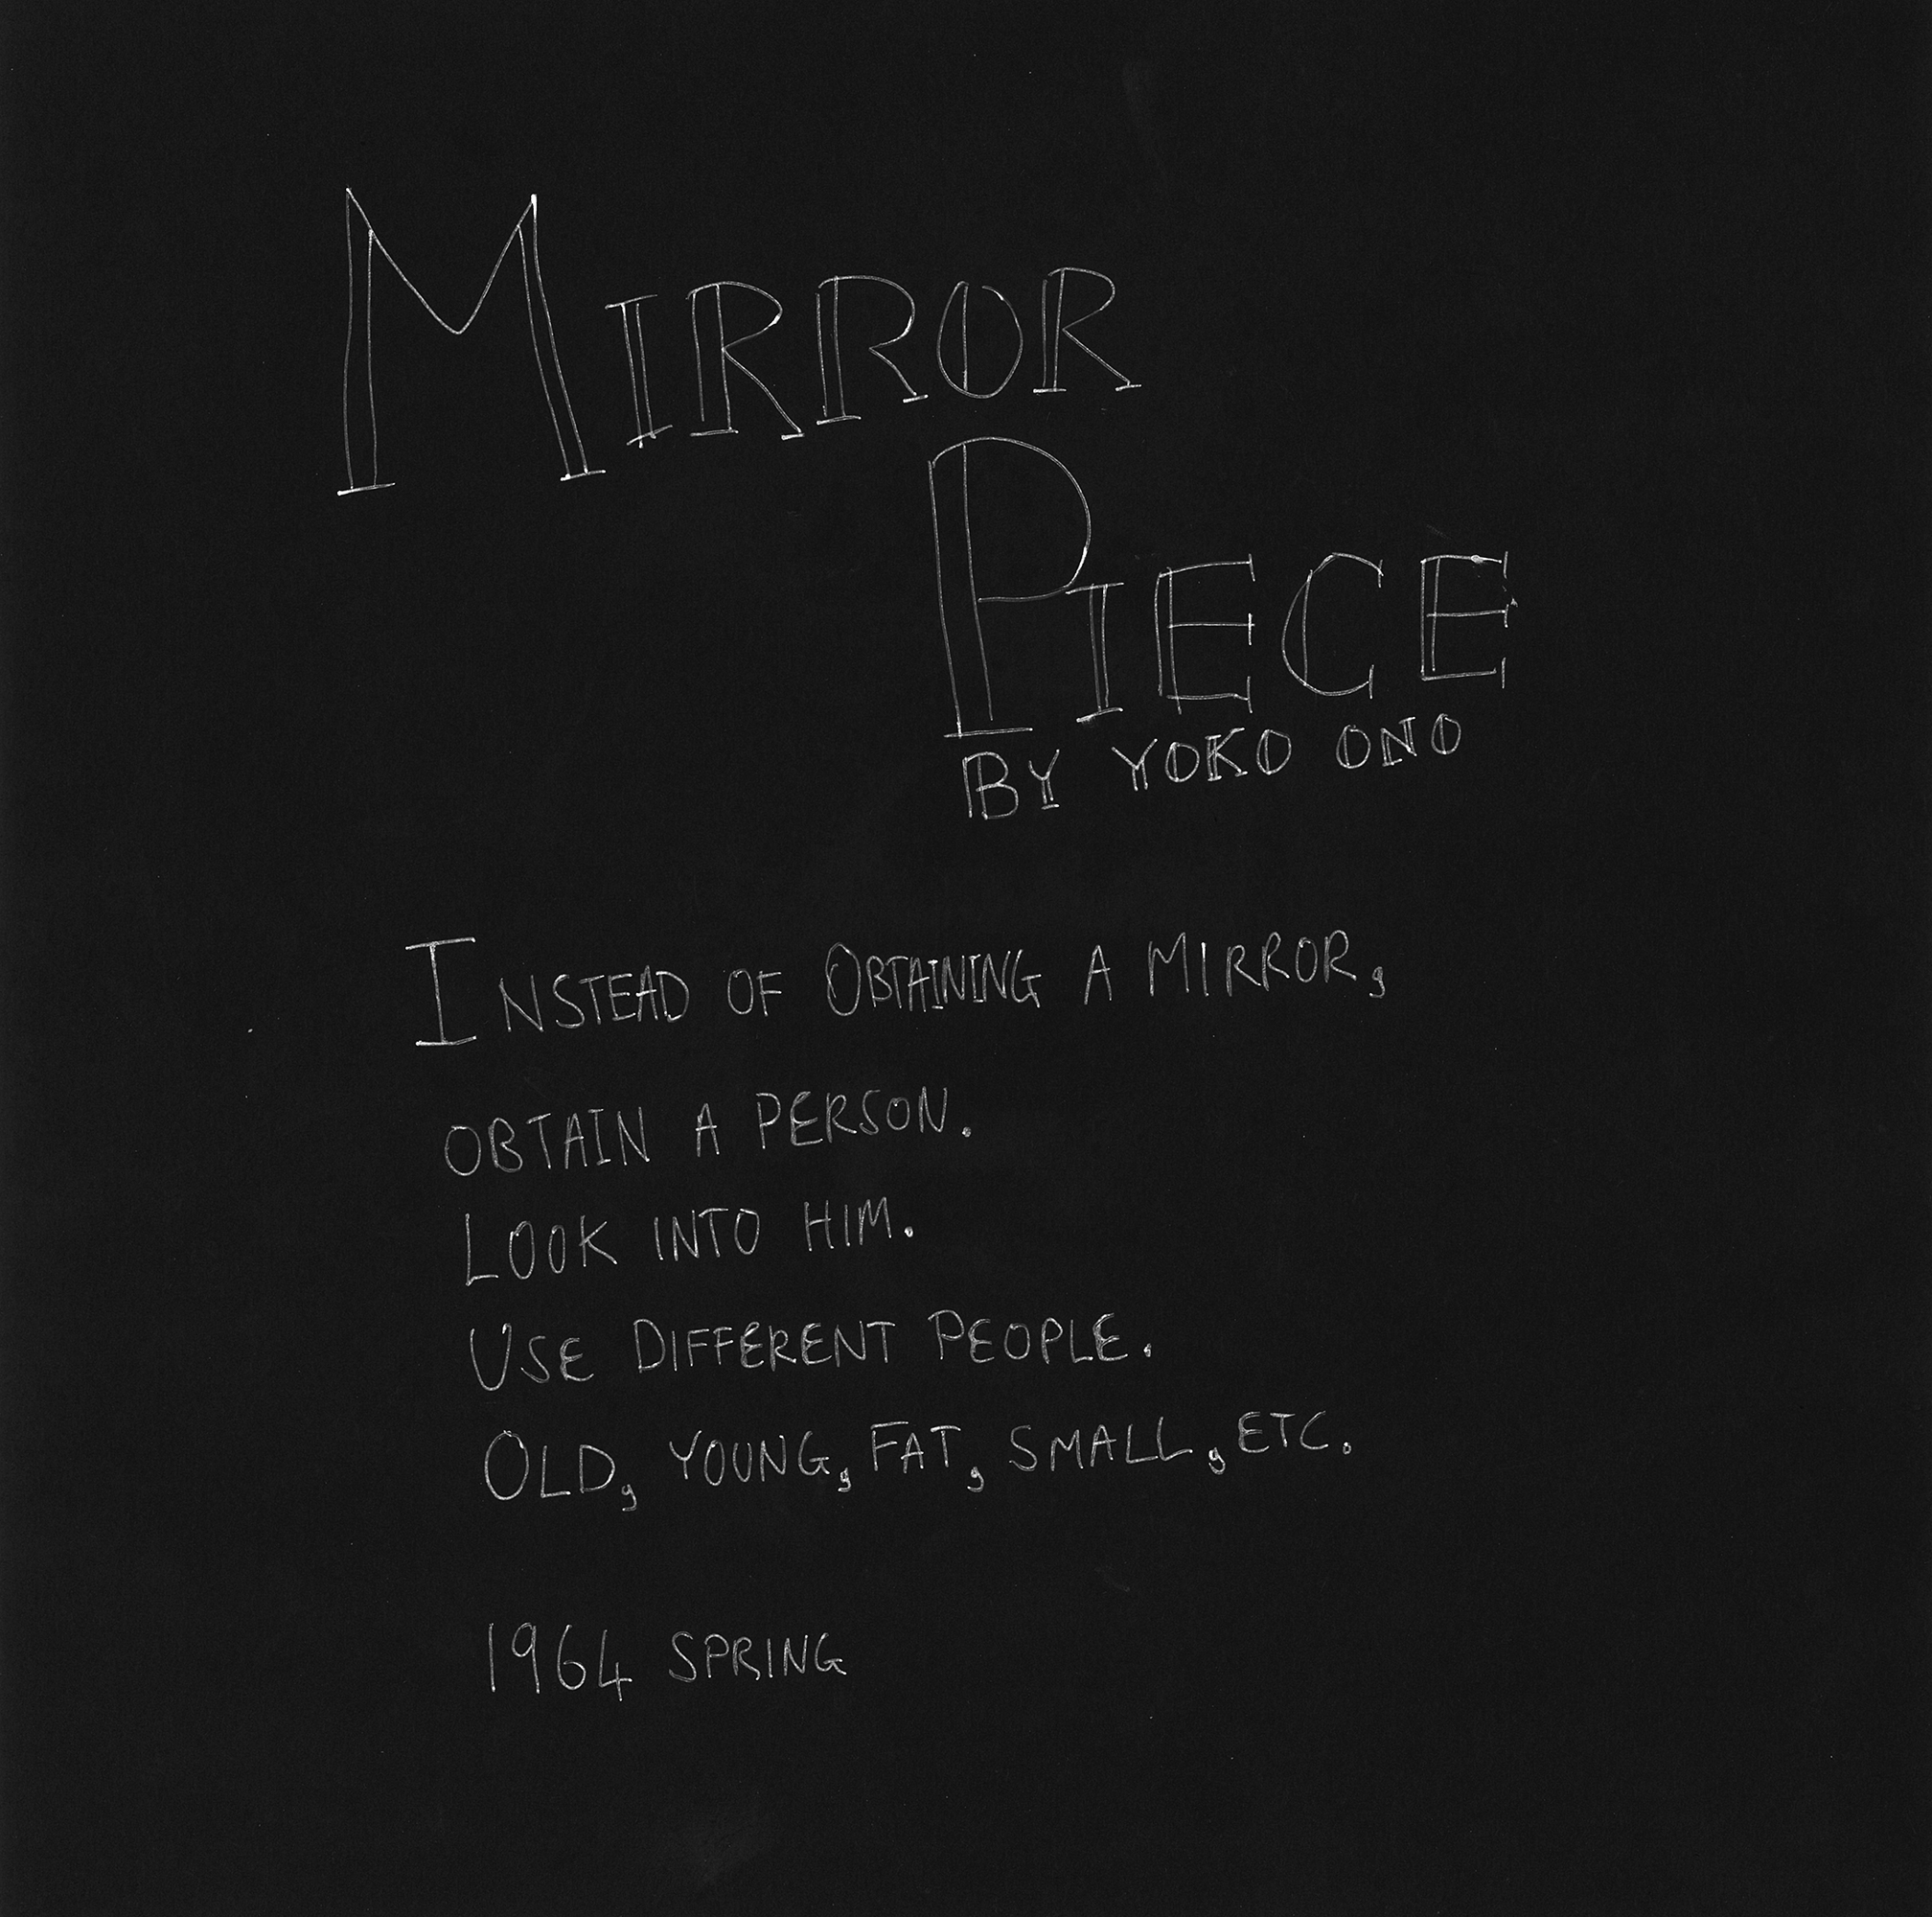 MIRROR
PIECE
BY YOKO ONO
INSTEAD OF OBTAINING A MIRROR,
OBTAIN A PERSON.
LOOK INTO HIM.
USE DIFFERENT PEOPLE.
OLD, YOUNG, FAT, SMALL, ETC.
1964 SPRING